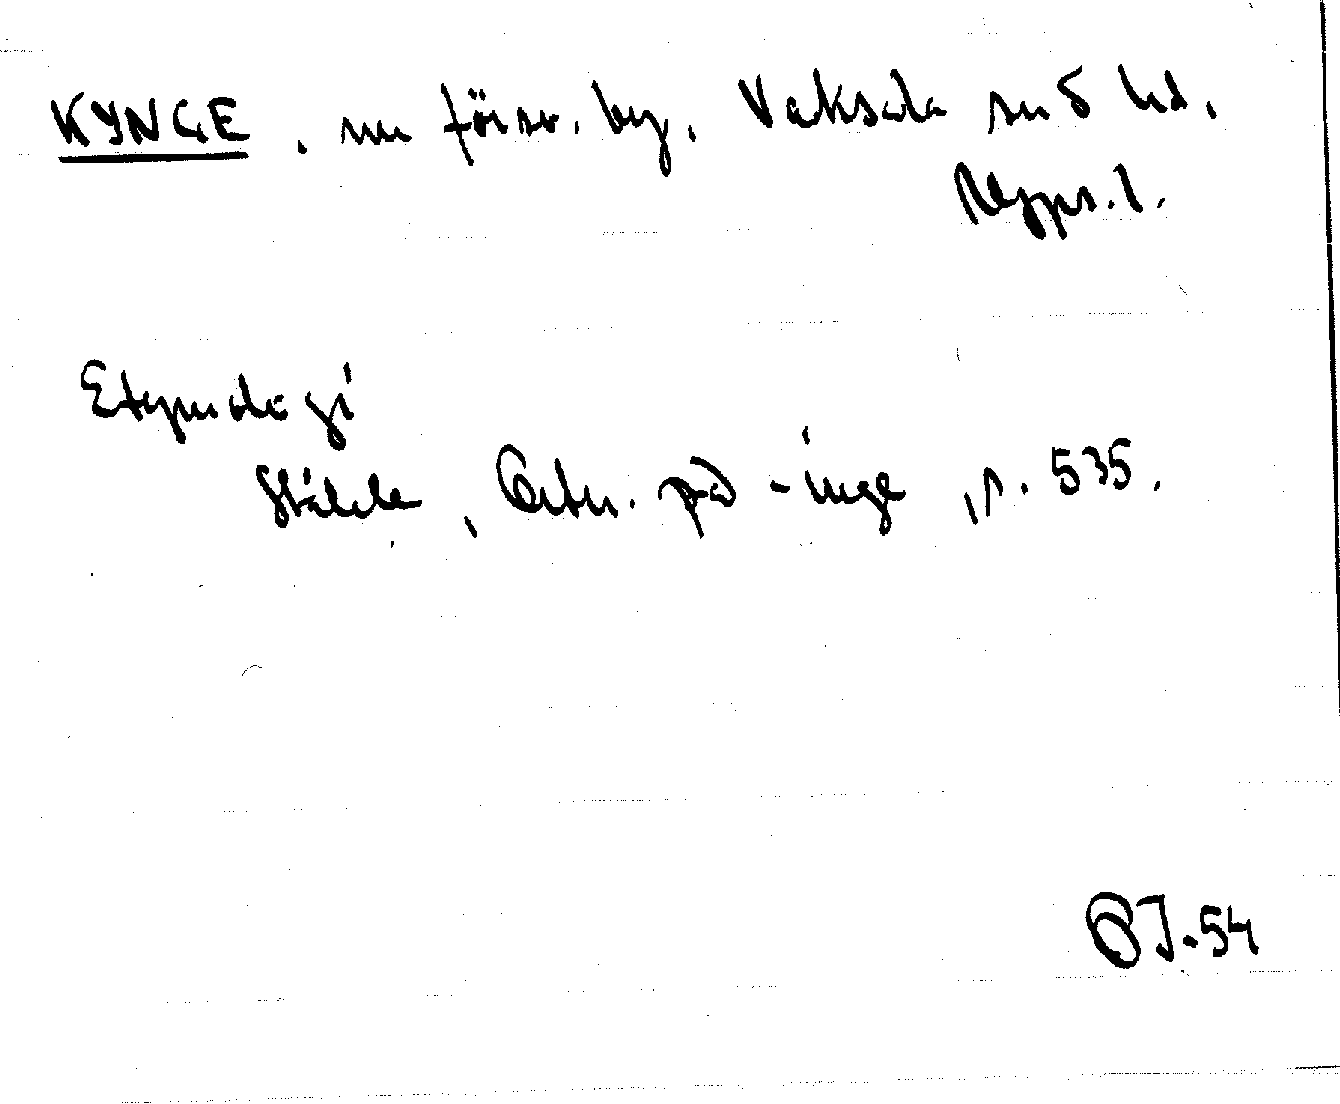 KYNGE, nu försv. by, Vaksala sn o hd,
Upps. l.
Etymologi
Ståhle, Ortn. på -inge, s. 535.